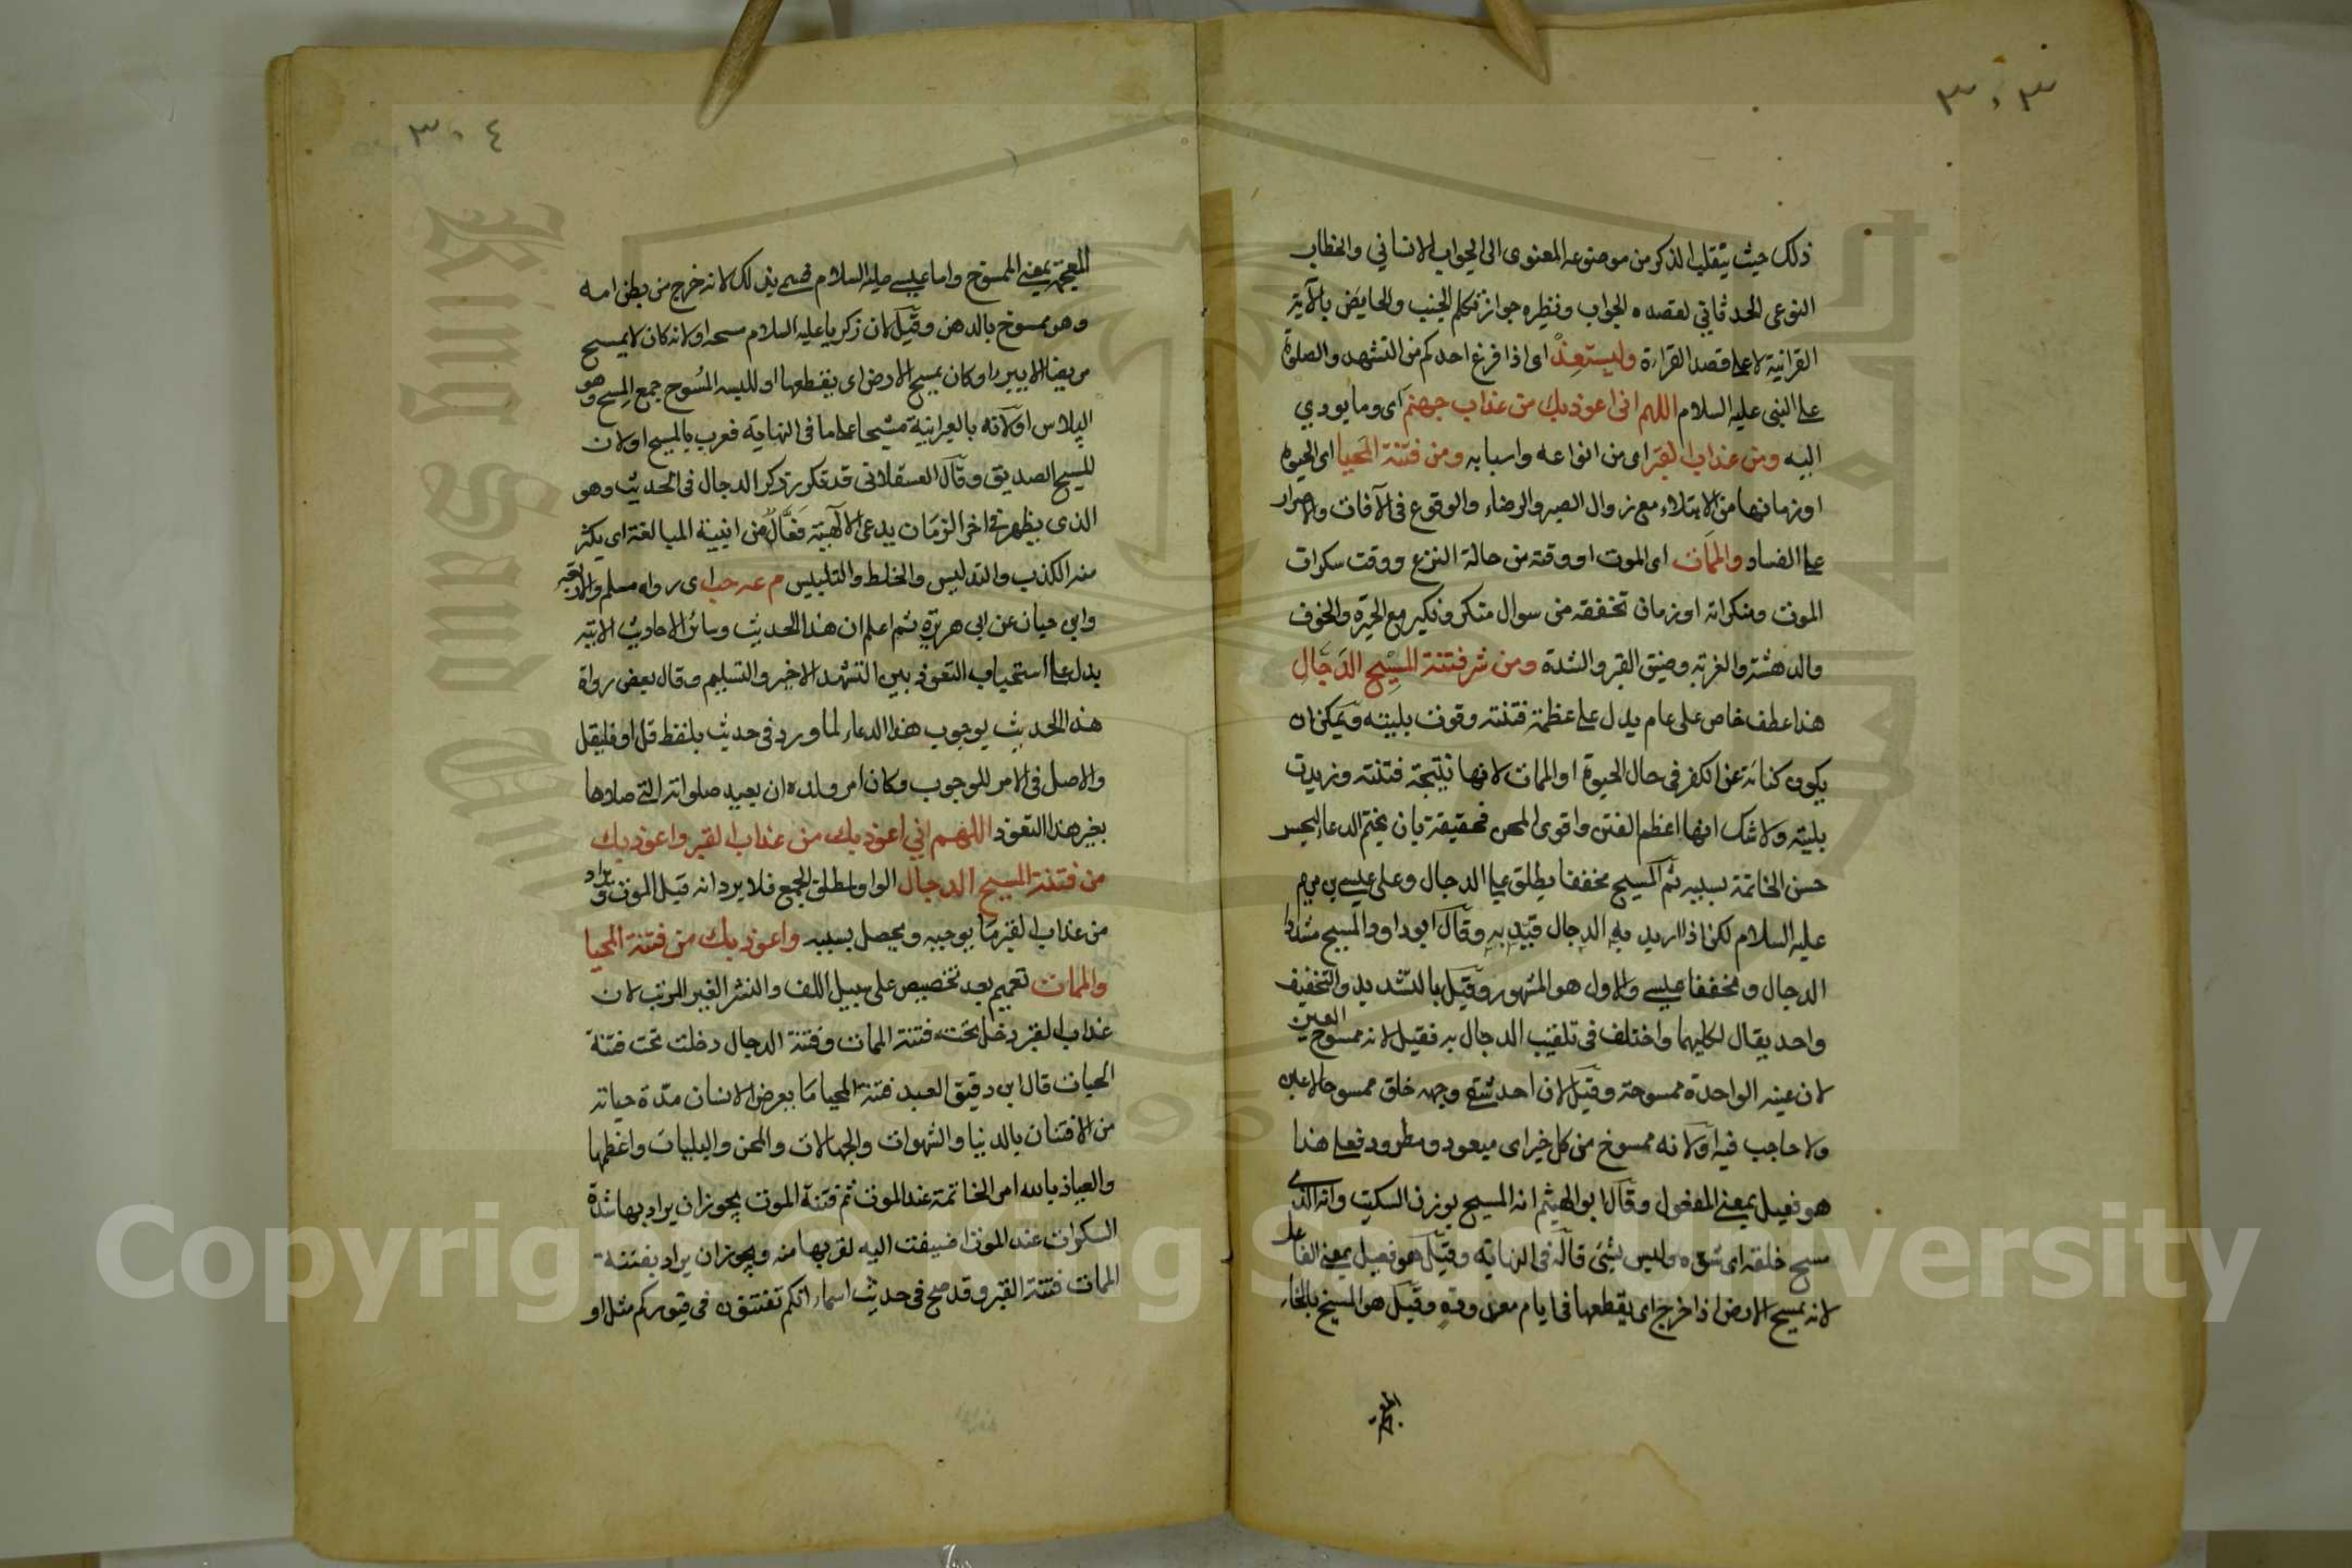 ٣٠٣
ذلك حيث ينقلب الذكر من موضوعه المعنوى الى الجواب الانسانى والخطاب
النوعى الحدثانى لقصده الجواب ونظيره جواز تكلم الجنب والحايض بالآية
القرانية لا على قصد القراءة وليستعذ اى اذا فرغ احدكم من التشهد والصلوة
على النبى عليه السلام اللهم انى اعوذ بك من عذاب جهنم اى وما يودي
اليه ومن عذاب القبر اى من انواعه واسبابه ومن فتنة المحيا اى الحيوة
او زمانها من الابتلاء مع زوال الصبر والرضاء والوقوع فى الآفات والاصرار
على الفساد والممات اى الموت او وقته من حالة النزع ووقت سكرات
الموت ومنكراته او زمان تخففقه من سوال منكر ونكير مع الحيرة والخوف
والدهشة والغربة وضيق القبر والشدة ومن شر فتنة المسيح الدجال
هذا عطف خاص على عام يدل على عظمة فتنته وقوت بليته ويمكن ان
يكون كناية عن الكفر فى حال الحيوة او الممات لانها نتيجة فتنته وزيدت
بليته ولا شك انها اعظم الفتن واقوى المحن فحقيقة بان يختم الدعاء ليحسر
حسن الخاتمة بسببه ثم المسيح مخففا يطلق على الدجال وعلى عيسى بن مريم
عليه السلام لكن اذا اريد به الدجال قيد به وقال ابوداود المسيح مشددا
الدجال ومخففا عيسى والاول هو المشهور وقيل بالتشديد والتخفيف
واحد يقال لكليهما واختلف فى تلقيب الدجال به فقيل لانه ممسوح العين
لان عينه الواحدة ممسوحة وقيل لان احد شقى وجهه خلق ممسوحا لا عين
ولا حاجب فيه او لانه ممسوخ من كل خير اى مبعود ومطرود فعلى هذا
هو فعيل بمعنى المفعول وقال ابو الهيثم انه المسيح بوزن السكيت وانه الذى
مسح خلقه اى شوه وليس بشئ قاله فى النهاية وقيل هو فعيل بمعنى الفاعل
لانه يمسح الارض اذا خرج اى يقطعها فى ايام معدودة وقيل هو المسيخ بالخاء
المعجمة
٣٠٤
المعجمة بمعنى الممسوخ واما عيسى عليه السلام فسمى بذلك لانه خرج من بطن امه
وهو ممسوح بالدهن وقيل لان زكريا عليه السلام مسحه او لانه كان لا يمسح
مريضا الا يبرء او كان يمسح الارض اى يقطعها او للبسه المسوح جمع المسح وهو
البلاس او لانه بالعبرانية مشيحا على ما فى النهاية فعرب بالمسيح او لان
المسيح الصديق وقال العسقلانى قد تكرر ذكر الدجال فى الحديث وهو
الذى يظهر فى اخر الزمان يدعى الالهية فعال من ابنية المبالغة اى يكثر
منه الكذب والتدليس والخلط والتلبيس م عه حب اى رواه مسلم والاربعة
وابن حبان عن ابى هريرة ثم اعلم ان هذا الحديث وسائر الاحاديث الاتية
يدل على استحباب التعوذ بين التشهد الاخير والتسليم وقال بعض رواة
هذا الحديث بوجوب هذا الدعاء لما ورد فى حديث بلفظ قل او فليقل
والاصل فى الامر للوجوب وكان امر ولده ان يعيد صلواته التى صلاها
بغير هذا التعوذ اللهم انى اعوذ بك من عذاب القبر واعوذ بك
من فتنة المسيح الدجال الواو لمطلق الجمع فلا يرد انه قبل الموت ويراد
من عذاب القبر ما يوجبه ويحصل بسببه واعوذ بك من فتنة المحيا
والممات تعميم بعد تخصيص على سبيل اللف والنشر الغير المرتب لان
عذاب القبر دخل تحت فتنة الممات وفتنة الدجال دخلت تحت فتنة
الحيات قال ابن دقيق العيد فتنة المحيا ما يعرض الانسان مدة حياته
من الافتنان بالدنيا والشهوات والجهالات والمحن والبليات واعظمها
والعياذ بالله امر الخاتمة عند الموت ثم فتنة الموت يجوز ان يراد بها شدة
السكرات عند الموت اضيفت اليه لقربها منه ويجوز ان يراد بفتنة
الممات فتنة القبر وقد صح فى حديث اسماء انكم تفتنون فى قبوركم مثل او
King Saud University
Copyright © King Saud University